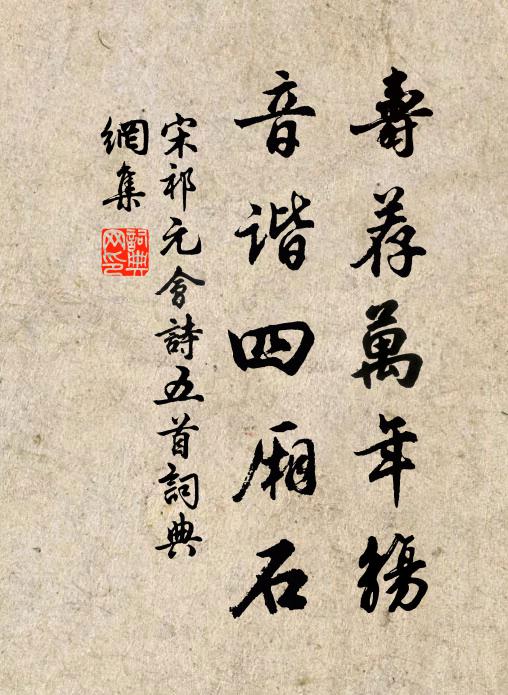 壽荐萬年觴
音諧四厢石
宋祁元會詩五首詞典
網集
詞典
网印